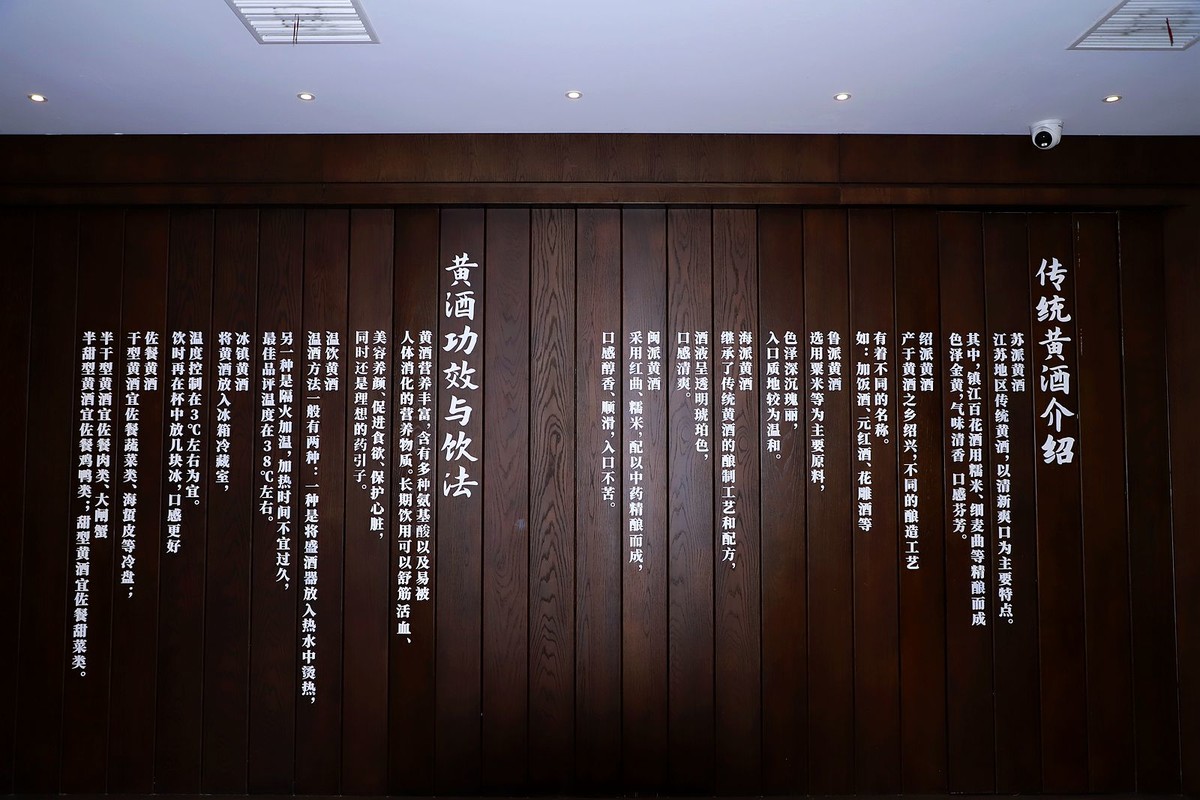 传统黄酒介绍
苏派黄酒
江苏地区传统黄酒，以清新爽口为主要特点。
其中，镇江百花酒用糯米、细麦曲等精酿而成
色泽金黄，气味清香 口感芬芳。
绍派黄酒
产于黄酒之乡绍兴，不同的酿造工艺
有着不同的名称。
如：加饭酒、元红酒、花雕酒等
鲁派黄酒
选用粟米等为主要原料，
色泽深沉瑰丽，
入口质地较为温和。
海派黄酒
继承了传统黄酒的酿制工艺和配方，
酒液呈透明琥珀色，
口感清爽。
闽派黄酒
采用红曲、糯米，配以中药精酿而成，
口感醇香、顺滑，入口不苦。
黄酒功效与饮法
黄酒营养丰富，含有多种氨基酸以及易被
人体消化的营养物质。长期饮用可以舒筋活血、
美容养颜、促进食欲、保护心脏，
同时还是理想的药引子。
温饮黄酒
温酒方法一般有两种：一种是将盛酒器放入热水中烫热，
另一种是隔火加温，加热时间不宜过久，
最佳品评温度在38℃左右。
冰镇黄酒
将黄酒放入冰箱冷藏室，
温度控制在3℃左右为宜。
饮时再在杯中放几块冰，口感更好
佐餐黄酒
干型黄酒宜佐餐蔬菜类、海蜇皮等冷盘；
半干型黄酒宜佐餐肉类、大闸蟹
半甜型黄酒宜佐餐鸡鸭类；甜型黄酒宜佐餐甜菜类。